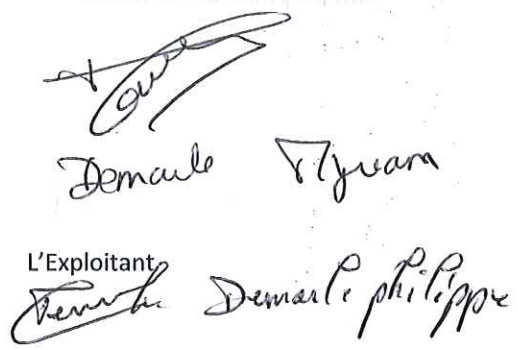 Demarle Myriam
L'Exploitant
Demarle philippe